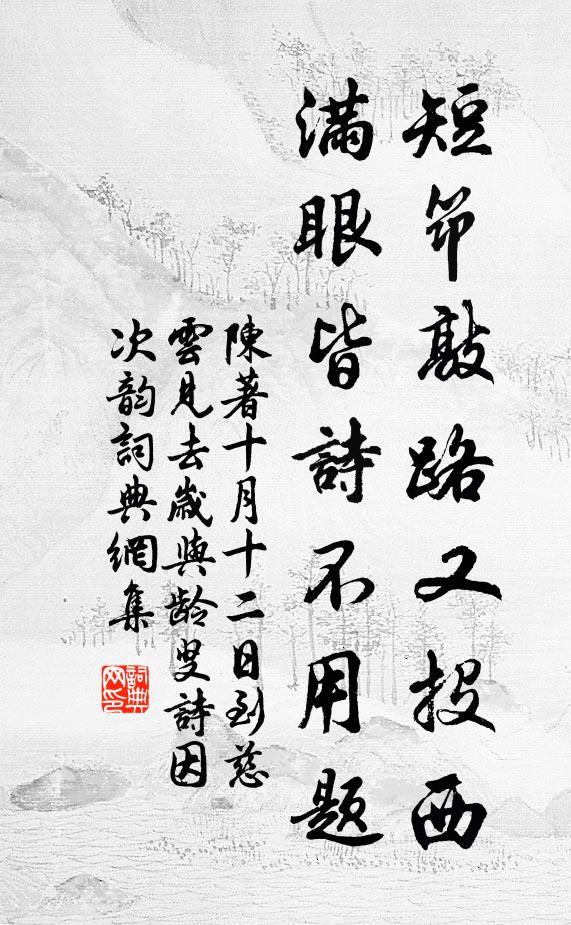 短筇敲路又投西
滿眼皆詩不用題
陳著十月十二日到慈
雲見去歲與龄叟詩因
次韵詞典網集
詞典
网印